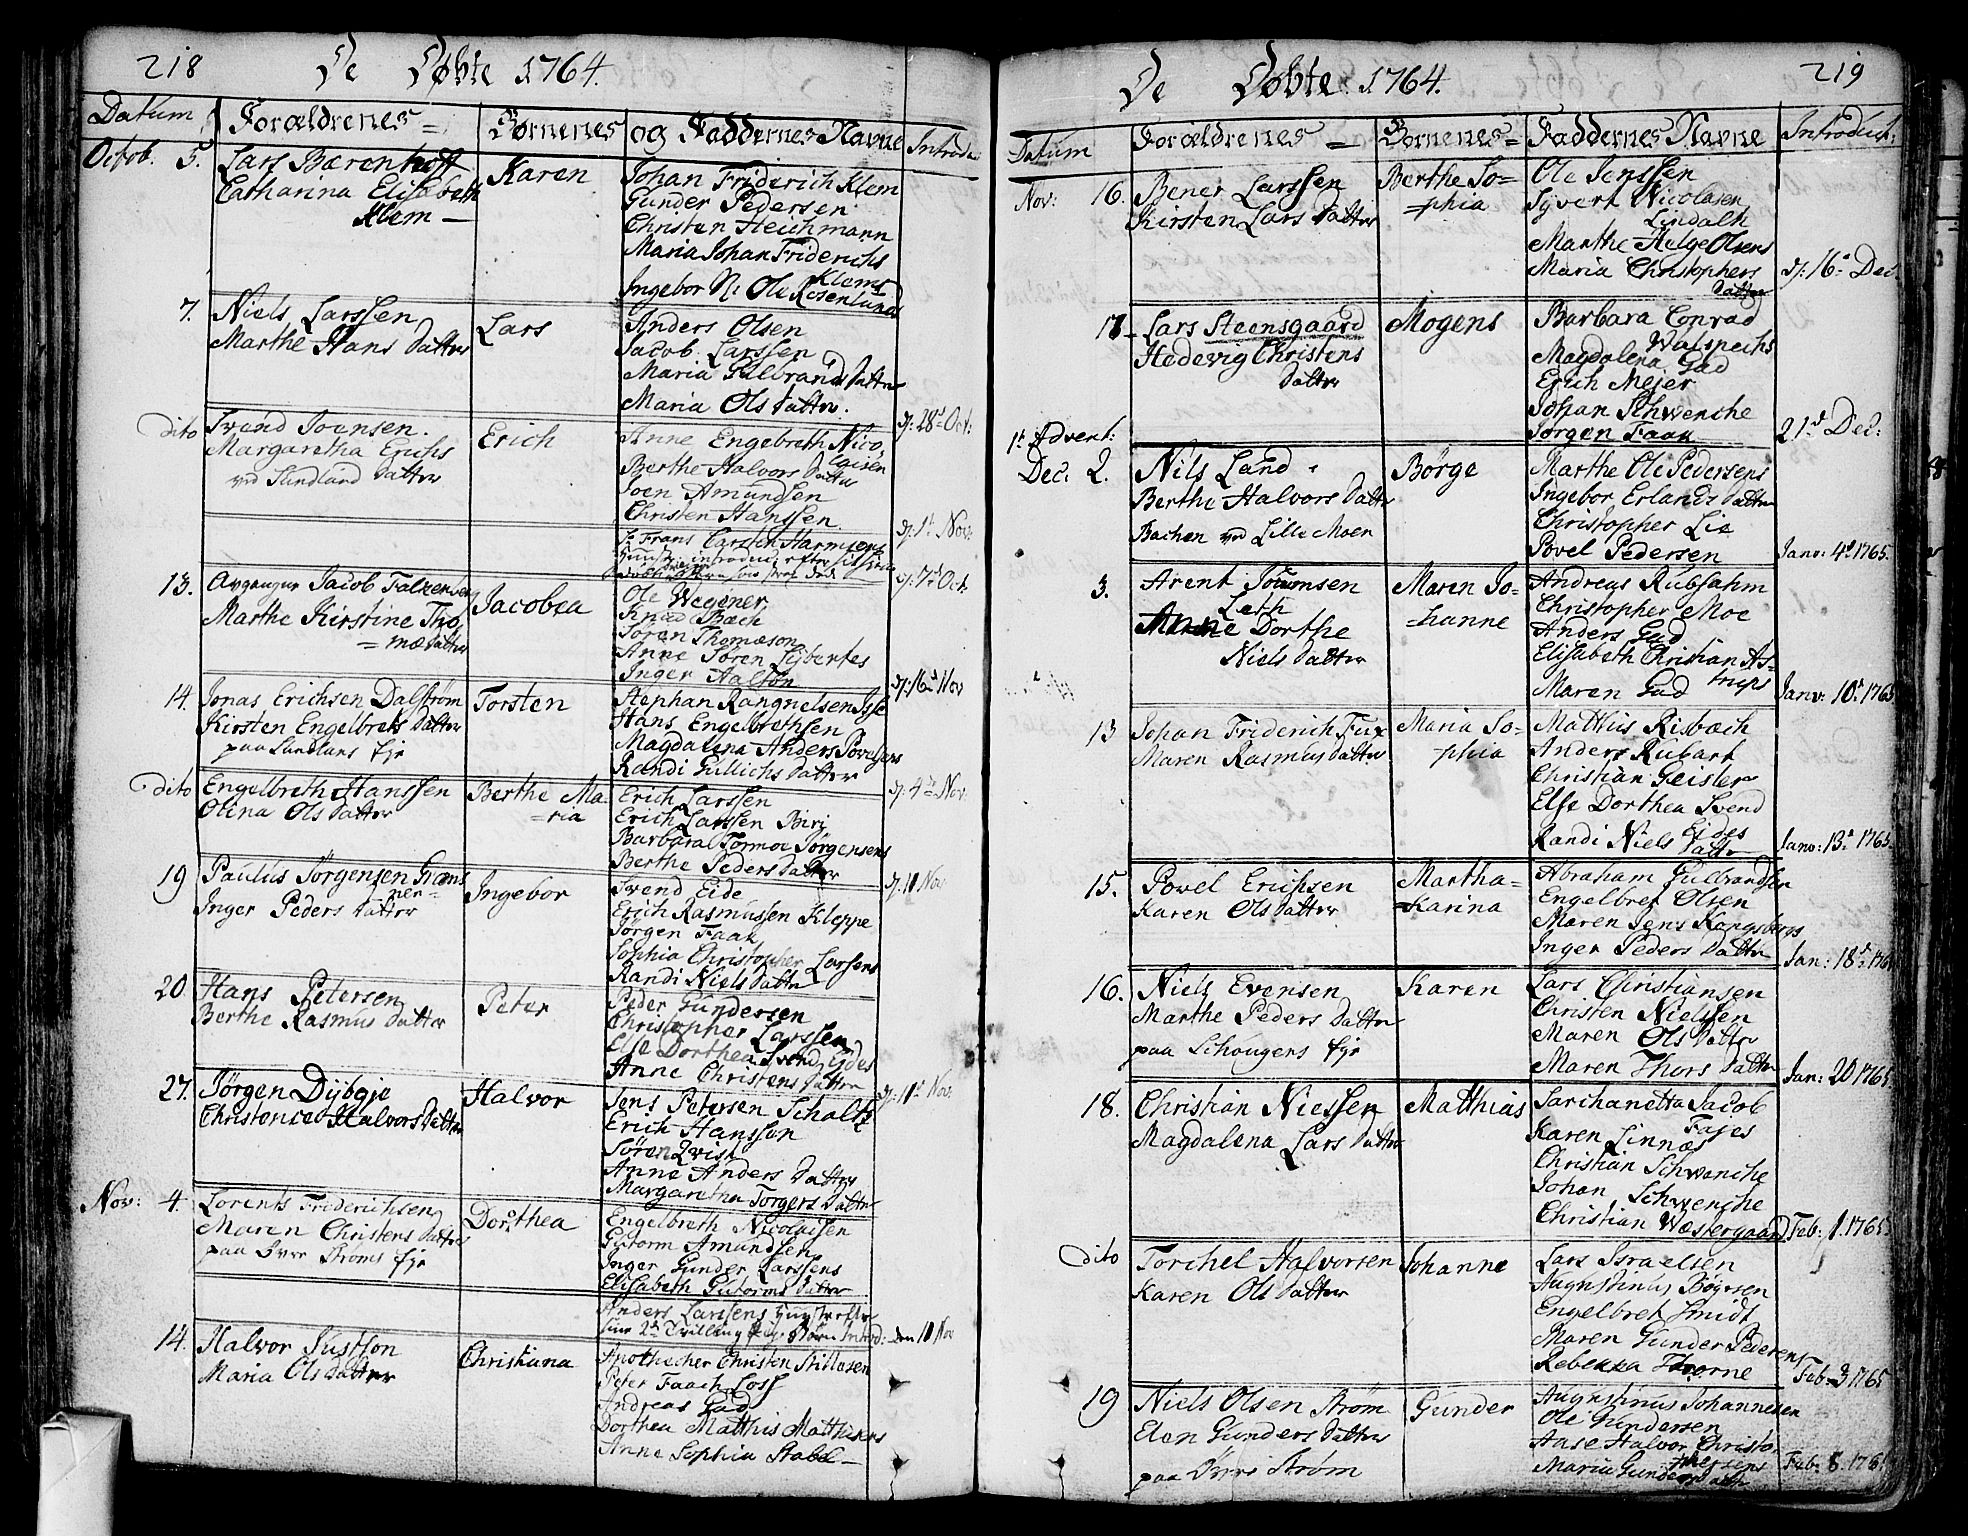 218
De Døbte 1764.
Datum
Forældrenes
Børnenes
og Faddernes Navne
Introd
Octob. 5.
Lars Bærenhoff
Catharina Elisabeth
Klem
Karen
Johan Friderich Klem
Gunder Pedersen
Christen Heichmann
Maria Johan Friderichs
Klems
Ingebor N. Ole Rosenlunds
7.
Niels Larssen
Marthe Hans datter
Lars
Anders Olsen
Jacob Larssen
Maria Gulbrands datter
Maria Ols datter.
d. 28 Oct:
dito
Svend Joensen.
Margaretha Erichs
ved Sundland datter
Erich
Anne Engebreth Nico,
laisen
Berthe Halvors datter
Joen Amundsen
Christen Hanssen.
d. 1 Nov:
Sr Frans Carsten Harmsens
d. 7 Oct.
13.
Jacob Falkensen
Marthe Kirstine Tho,
=mæ datter
Jacobea
Ole Wegener
Knud Bæch
Søren Thomæson
Anne Søren Sybertes
Inger Aalton
d. 16 Nov
14.
Jonas Erichsen Dalstrøm
Kirsten Engelbrets datter
paa Sundlans Eje
Torsten
Stephan Rangnelsen
Hans Engelbrethsen
Magdalena Anders Povelsens
Randi Gullichs datter
d. 4 Nov.
dito
Engelbreth Hanssen
Olina Ols datter
Berthe Ma=
=ria
Erich Larssen
Erich Larssen Birj
Barbara Tormoe Jørgensens
Berthe Peders datter
d. 11 Nov
19
Paulus Jørgensen Græns
ner
Inger Peders datter
Ingebor
Svend Eide
Erich Rasmussen Kleppe
Jørgen Faak
Sophia Christopher Larsens
Randi Niels datter
20
Hans Petersen
Berthe Rasmus datter
Peter
Peder Gundersen
Christopher Larssen
Else Dorthea Svend Eides
Anne Christens datter
27.
Jørgen Dybgje
Christence Halvors datter
Halvor
Jens Petersen Schaltz
Erich Hanssen
Søren Qvist
Anne Anders datter
Margaretha Torgers datter
d. 11 Nov.
Nov: 4.
Lorents Friderichsen
Maren Christens datter
paa Øvre Strøms Eje
Dorothea
Engelbreth Nicolaisen
Gutorm Amundsen
Inger Gunder Larssens
Elisabeth Gutorms datter
Anders Larssens Hustr efter
sine 2de Tvilling Børn Introd: den 11 Nov
14.
Halvor Justson
Maria Ols datter
Christiana
Apothecher Christen Stillasen
Peter Faach Loss
Andreas Gad
Dorthea Matthis Matthisens
Anne Sophia Stabel
219
De Døbte 1764.
Datum
Forældrenes
Børnenes
Faddernes Navne
Introduct:
Nov: 16.
Bener Larssen
Kirsten Lars datter
Berthe So=
=phia
Ole Jenssen
Syvert Nicolasen
Lindalh
Marthe Helge Olsens
Maria Christophers
datter
d. 16 Dec
17
Lars Steensgaard
Hedevig Christens
datter
Mogens
Barbara Conrad
Walspechs
Magdalena Gad
Erich Mejer
Johan Schwenche
Jørgen Faak
21 Dec:
1 Advent:
Dec: 2.
Nils Land
Berthe Halvors datter
Bachen ved Lille Moen
Børge
Marthe Ole Pedersens
Ingebor Erlands datter
Christopher Lie
Povel Pedersen
Janv: 4 1765.
3.
Arent Joensen
Leth
Anne Dorthe
Niels datter
Maren Jo=
=hanne
Andreas Rubsahm
Christopher Moe
Anders Gad
Elisabeth Christian As=
trups
Maren Gad
Janv: 10 1765
13
Johan Friderich Fux
Maren Rasmus datter
Maria So=
phia
Matthis Risbæch
Anders Rubart
Christian Geisler
Else Dorthea Svend
Eides
Randi Niels datter
Janv: 13 1765.
15.
Povel Erichsen
Karen Ols datter
Martha=
=Karina
Abraham Gulbrandsen
Engelbret Olsen
Maren Jens Kongsbergs
Inger Peders datter
Jan: 18 1765
16.
Niels Evensen
Marthe Peders datter
paa Schougens Eje
Karen
Lars Christiansen
Christen Nielssen
Maren Ols datter
Maren Thors datter
Jan: 20 1765.
18.
Christian Niessen
Magdalena Lars datter
Matthias
Sarchanetta Jacob
Fajes
Karen Linnæs
Christian Schwenche
Johan Schwenche
Christian Wæstergaard
Feb: 1. 1765
dito
Torchel Halvorsen
Karen Ols datter
Johanne
Lars Israelsen
Augustinus Bøyesen
Engelbret Smidt
Maren Gunder Pedersens
Rebekka Thorne
Feb: 3 1765
19
Niels Olsen Strøm
Elen Gunders datter
paa Øvre Strøm
Gunder
Augustinus Johannesen
Ole Gundersen
Aase Halvor Christo=
phersens
Maria Gunders datter
Feb: 8. 1765